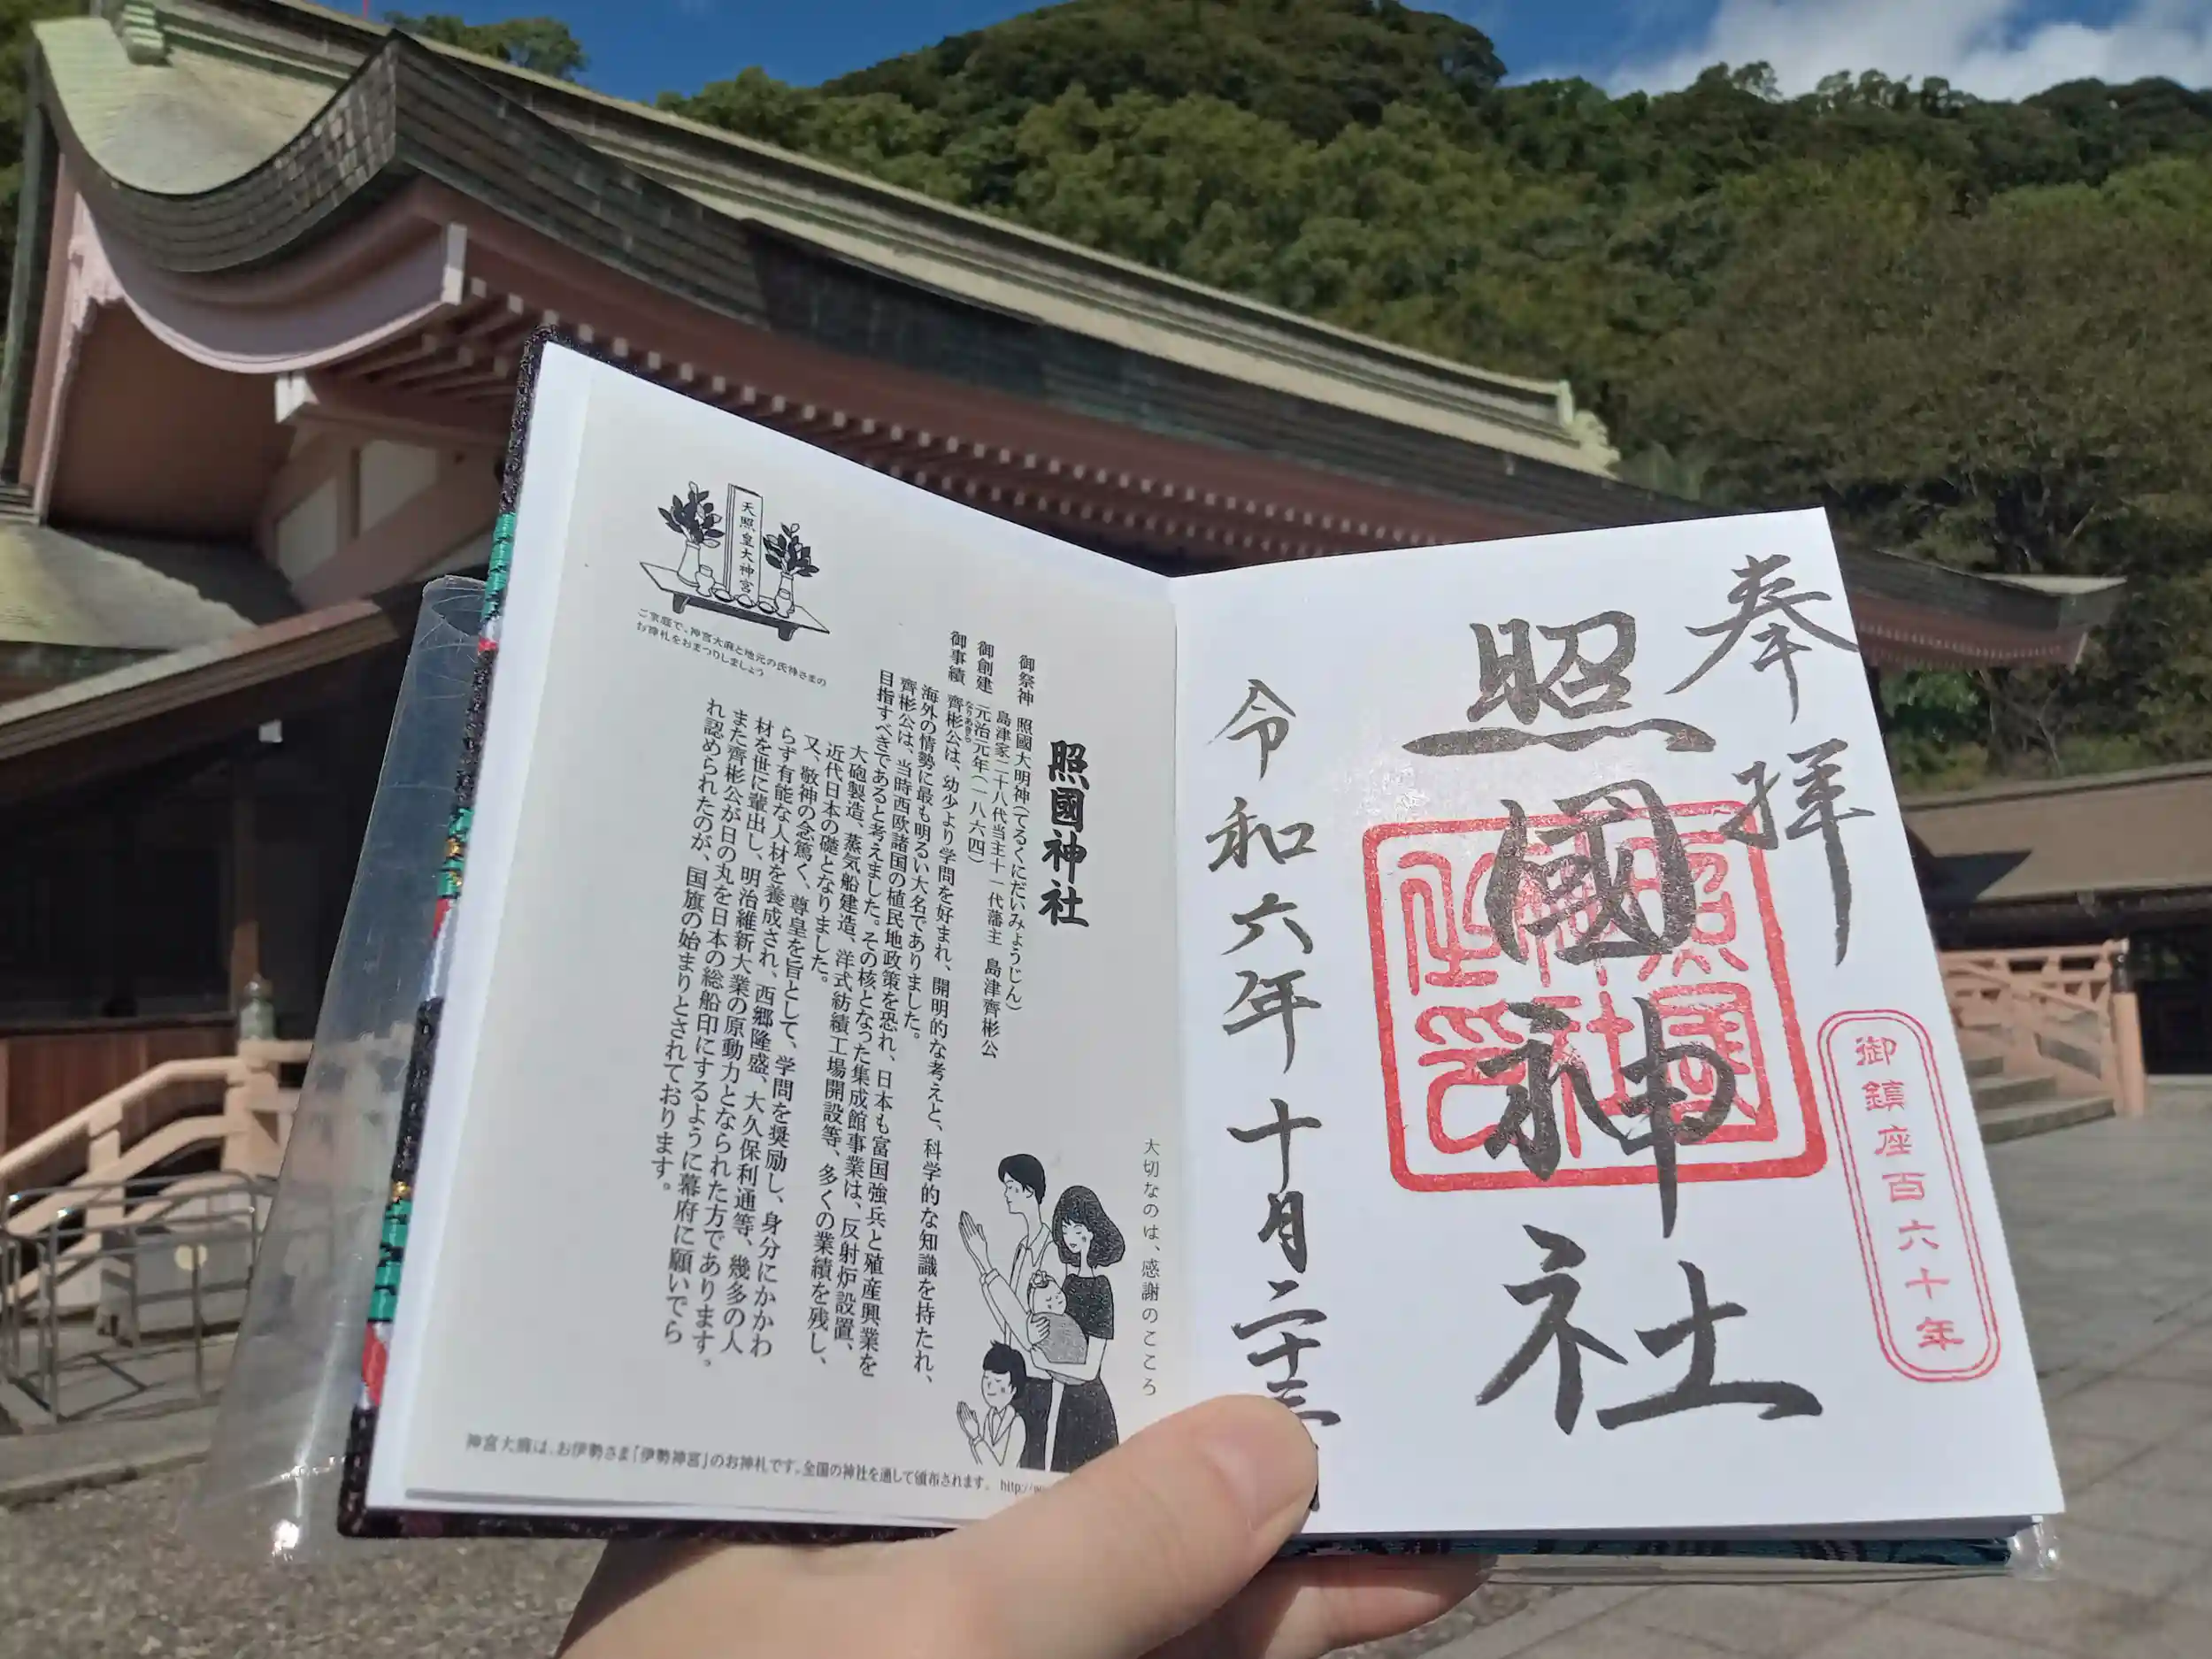 奉拝
照國神社
御鎮座百六十年
令和六年十月二十三
大切なのは、感謝のこころ
照國神社
御祭神 照國大明神(てるくにだいみょうじん)
島津家二十八代当主十一代藩主 島津齊彬公
御創建 元治元年(一八六四)
御事績 齊彬公は、幼少より学問を好まれ、開明的な考えと、科学的な知識を持たれ、
なりあきら
海外の情勢に最も明るい大名でありました。
齊彬公は、当時西欧諸国の植民地政策を恐れ、日本も富国強兵と殖産興業を
目指すべきであると考えました。その核となった集成館事業は、反射炉設置、
大砲製造、蒸気船建造、洋式紡績工場開設等、多くの業績を残し、
近代日本の礎となりました。
又、敬神の念篤く、尊皇を旨として、学問を奨励し、身分にかかわ
らず有能な人材を養成され、西郷隆盛、大久保利通等、幾多の人
材を世に輩出し、明治維新大業の原動力となられた方であります。
また齊彬公が日の丸を日本の総船印にするように幕府に願いでら
れ認められたのが、国旗の始まりとされております。
天照皇大神宮
ご家庭で、神宮大麻と地元の氏神さまの
お神札をおまつりしましょう
神宮大麻は、お伊勢さま「伊勢神宮」のお神札です。全国の神社を通して頒布されます。 http://w